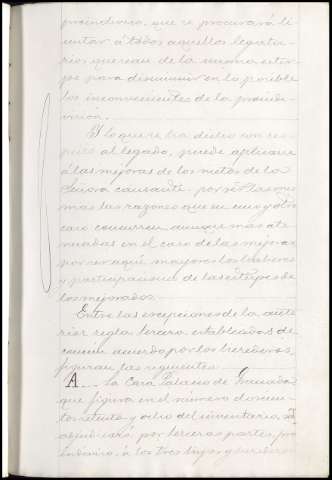 proindiviso, que se procurará li-
mitar á todos aquellos legata-
rios que sean de la misma estir-
pe para disminuir en lo posible
los inconvenientes de la proindi-
visión.
Y lo que se ha dicho con res-
pecto al legado, puede aplicarse
á las mejoras de los nietos de la
Señora causante, por ser las mis-
mas las razones que en uno y otro
caso concurren aunque más ate-
nuadas en el caso de las mejoras
por ser aquí mayores los haberes
y participaciones de las estirpes de
los mejorados.
Entre las excepciones de la ante-
rior regla tercera, establecidas de
común acuerdo por los herederos,
figuran las siguientes:
A... La Casa Palacio de Granada
que figura en el número doscien-
tos setenta y ocho del inventario, se
adjudicará por terceras partes, pro
indiviso, á los tres hijos y herederos